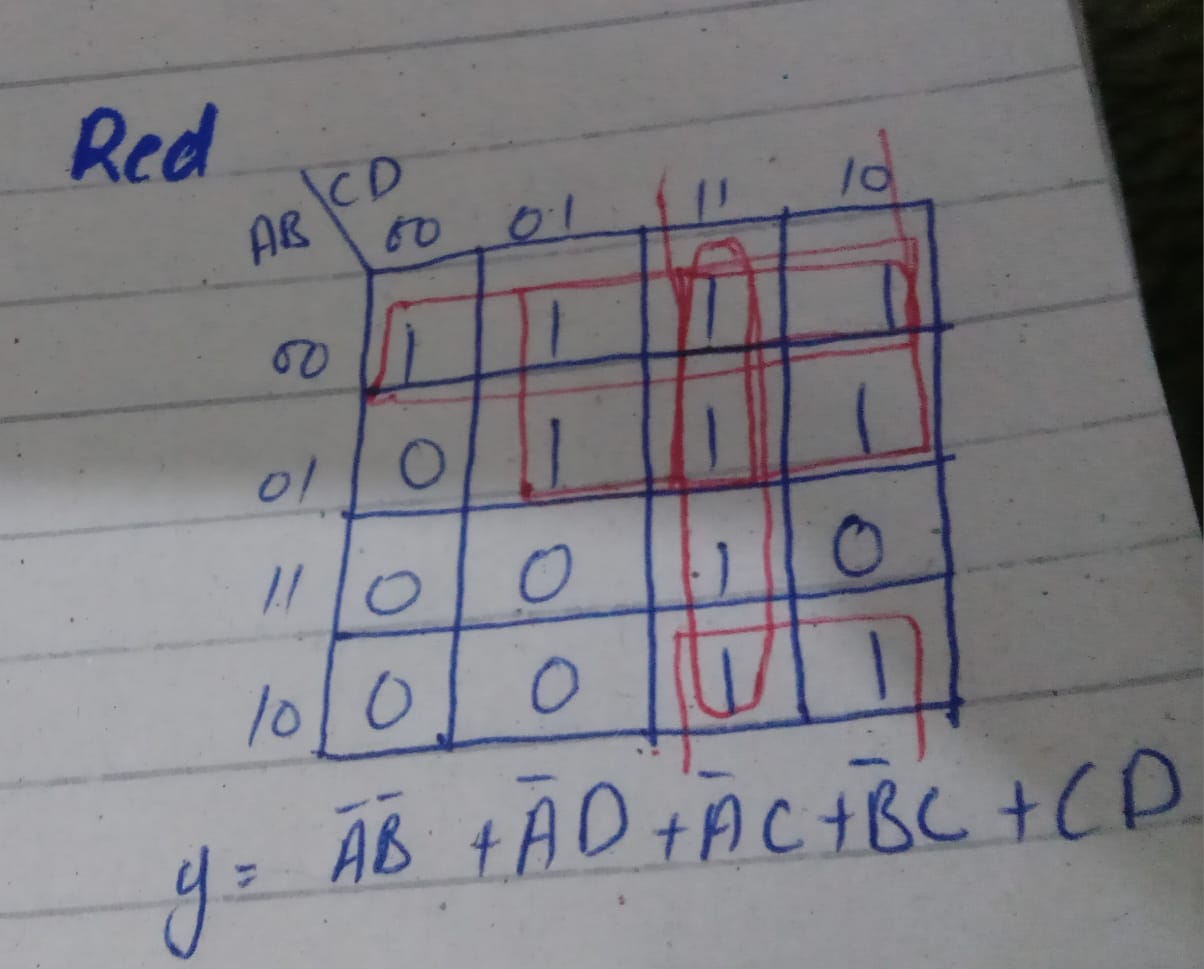 Red
CD
AB 00 01 11 10
00 1 1 1 1
01 0 1 1 1
11 0 0 1 0
10 0 0 1 1
y = A̅B̅ + A̅D + A̅C + B̅C + CD